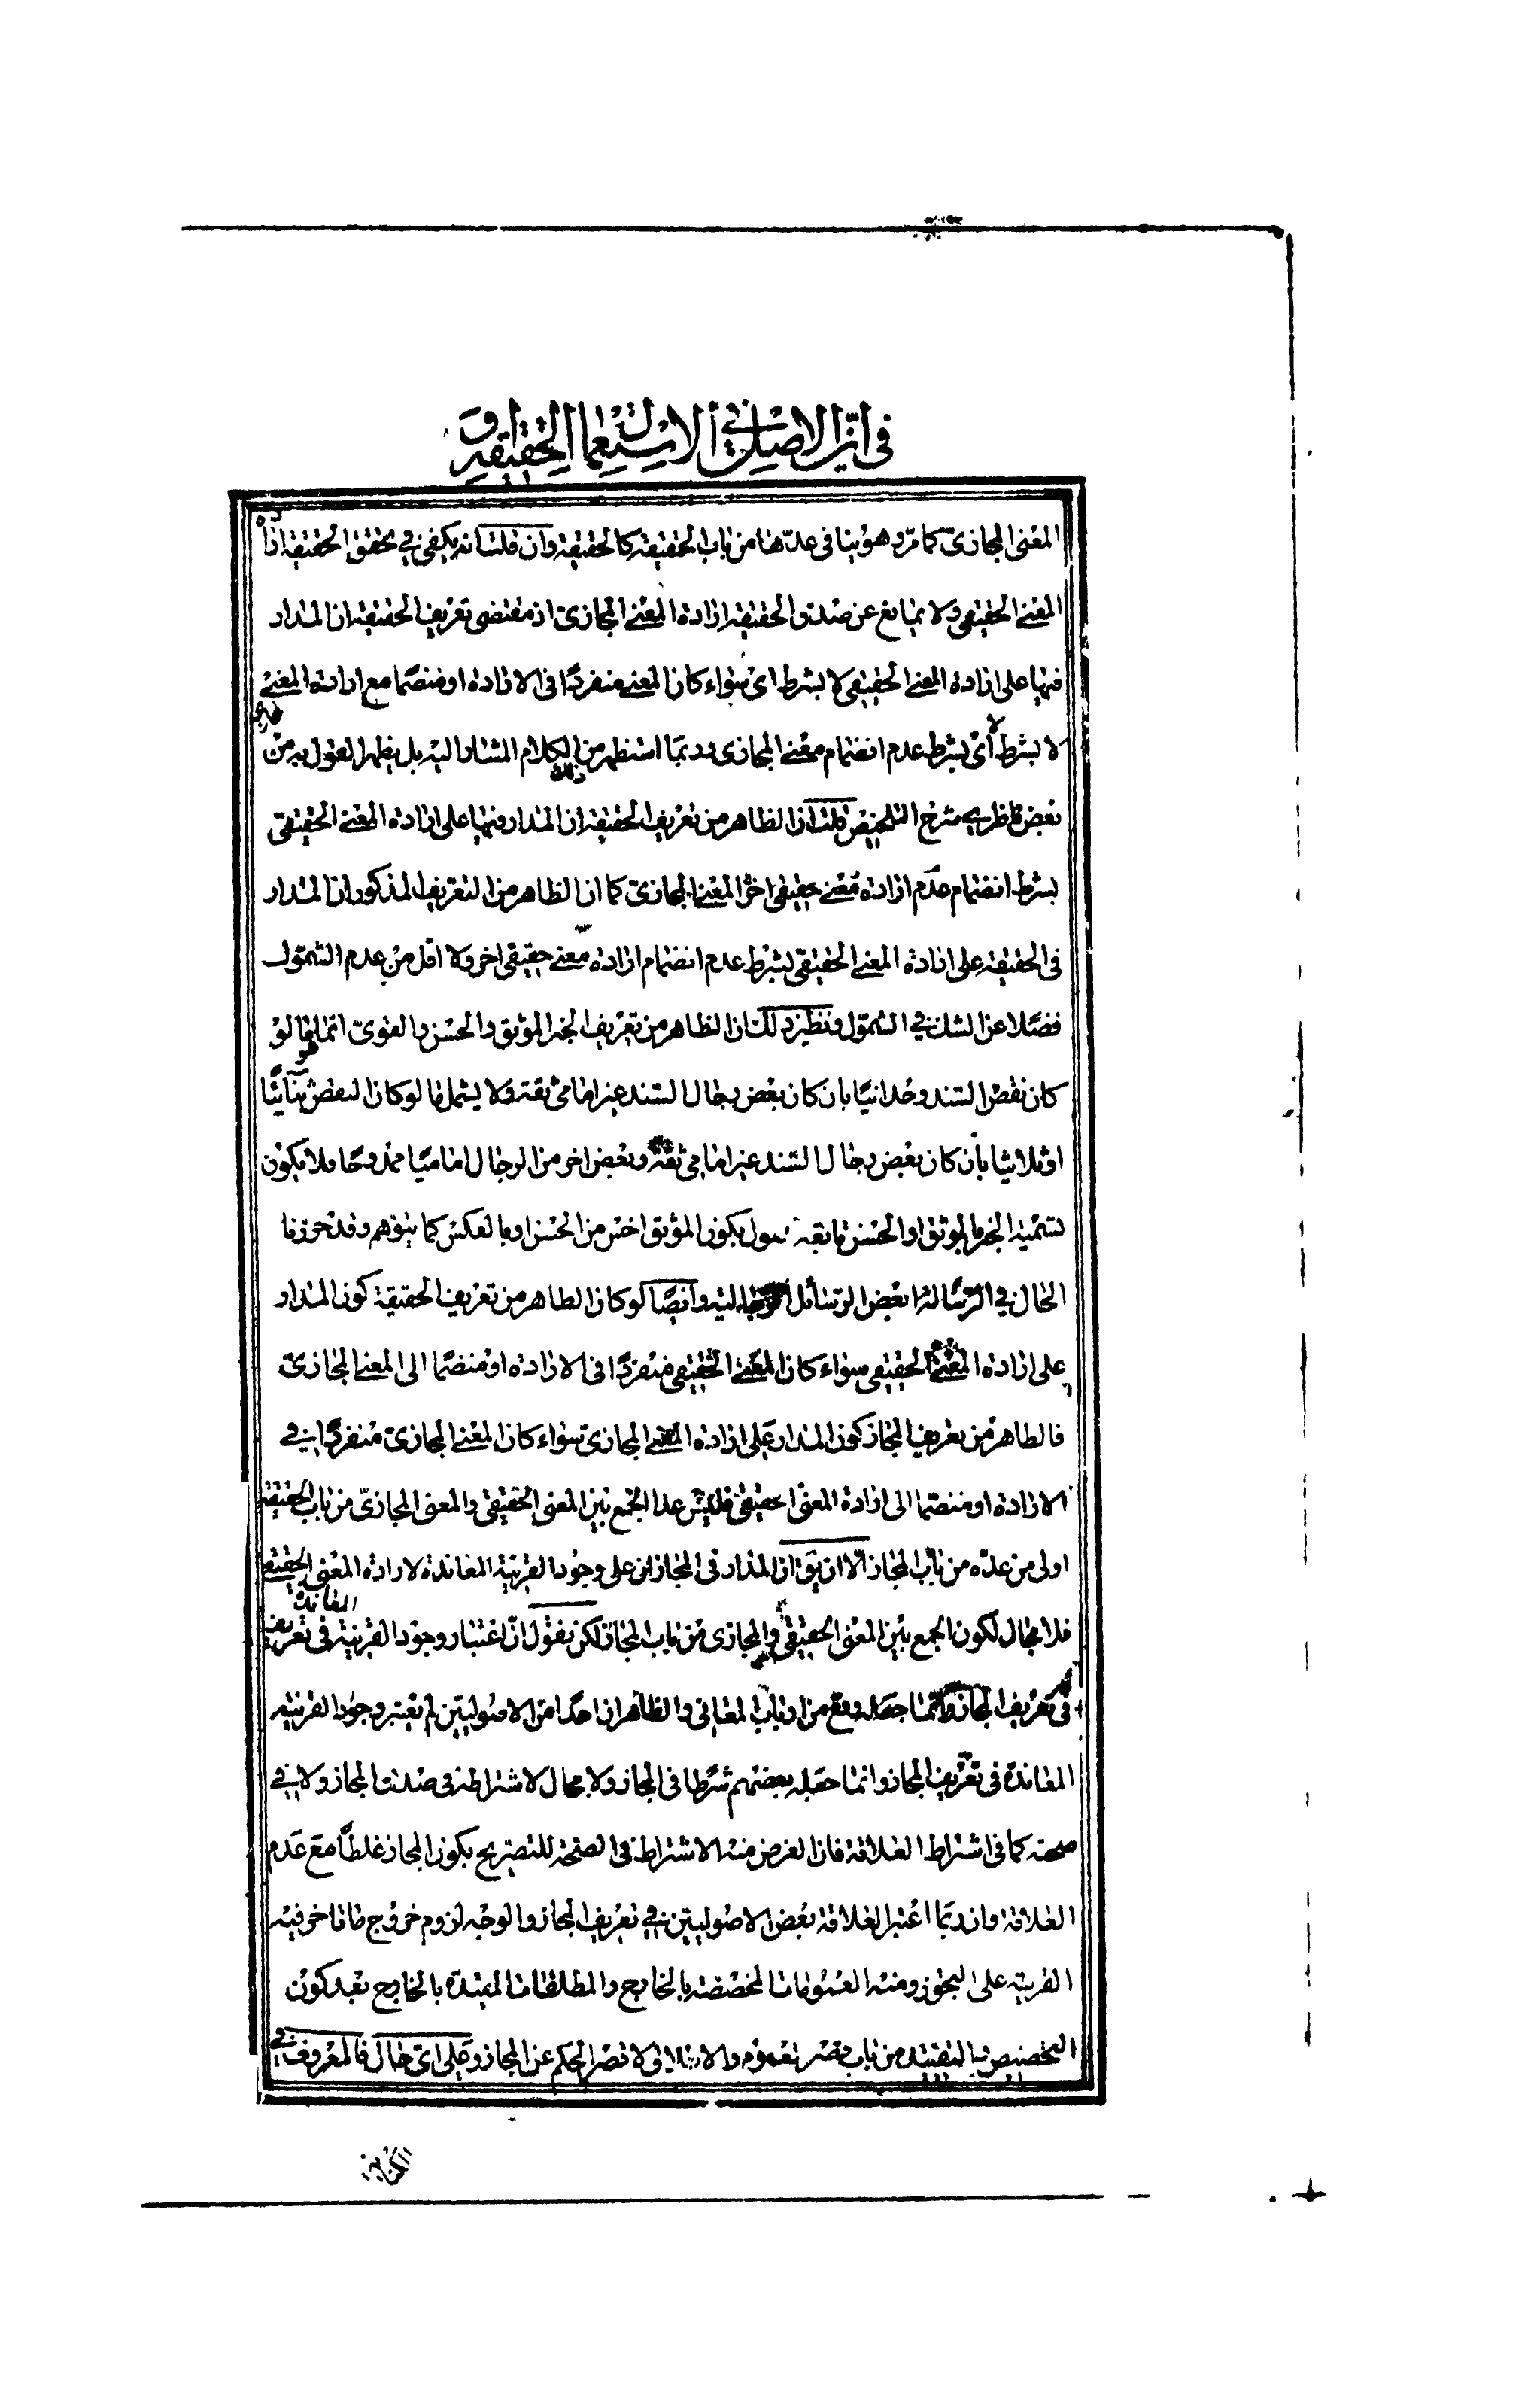 في ان الاصل في الاستعمال الحقيقة و
المعنى المجازى كما مرّ وهو ينافى عدّها من باب الحقيقة كالحقيقة وان قلت انه يكفى في تحقق الحقيقة ارادة
المعنى الحقيقى ولا يمانع عن صدق الحقيقة ارادة المعنى المجازى اذ مقتضى تعريف الحقيقة ان المدار
فيها على ارادة المعنى الحقيقى لا بشرط اى سواء كان المعنى منفردًا فى الارادة او منضمًا مع ارادة المعنى
لا بشرط لا اى بشرط عدم انضمام معنى المجازى وربما استظهر من الكلام المشار اليه بل يظهر القول به من
ذلك
بعض كلماته في شرح التلخيص قلت ان الظاهر من تعريف الحقيقة ان المدار فيها على ارادة المعنى الحقيقى
بشرط انضمام عدم ارادة معنى حقيقى اخر المعنى المجازى كما ان الظاهر من التعريف المذكور ان المدار
فى الحقيقة على ارادة المعنى الحقيقى بشرط عدم انضمام ارادة معنى حقيقى اخر ولا اقل من عدم الشمول
فضلا عن الشك في الشمول ونظير ذلك ان الظاهر من تعريف الخبر الموثق والحسن والقوى انما هو ما لو
كان نقص السند وحدانيّا بان كان بعض رجال السند غير امامى ثقة ولا يشمل ما لو كان النقص ثنائيًّا
او ثلاثيا بأن كان بعض رجال السند غير امامى ثقة وبعض اخر من الرجال اماميًا ممدوحًا فلا يكون
تسمية الخبر بالموثق او الحسن تابعة يكون الموثق اخس من الحسن او بالعكس كما يتوهم وقد حررنا
الحال في الرسالة بعض الرسائل الرجالية وايضًا لو كان الظاهر من تعريف الحقيقة كون المدار
على ارادة المعنى الحقيقى سواء كان المعنى الحقيقى منفردًا فى الارادة او منضمًا الى المعنى المجازىّ
فالظاهر من تعريف المجاز كون المدار على ارادة المعنى المجازى سواء كان المعنى المجازىّ منفردًا في
الارادة او منضما الى ارادة المعنى الحقيقى فليس عدا الجمع بين المعنى الحقيقى والمعنى المجازىّ من باب الحقيقة
اولى من عدّه من باب المجاز الّا ان يق ان المدار فى المجاز على وجود القرينة المعاندة لارادة المعنى الحقيقى
فلا مجال لكون الجمع بين المعنى الحقيقى والمجازى من باب المجاز لكن نقول ان اعتبار وجود القرينة المعاندة فى تعريف
فى تعريف المجاز انما جعله وقع من ارباب المعانى والظاهر ان احدًا من الاصوليين لم يعتبر وجود القرينة
المعاندة فى تعريف المجاز وانما جعله بعضهم شرطا فى المجاز ولا مجال لاشتراطه فى صدق المجاز ولا في
صحته كما فى اشتراط العلاقة فان الغرض منه الاشتراط فى الصحة للتصريح بكون المجاز غلطًا مع عدم
العلاقة وان ربما اعتبر العلاقة بعض الاصوليين في تعريف المجاز والوجه لزوم خروج ما تاخر فيه
القرينة على التجوز ومنه العمومات المخصّصة بالخارج والمطلقات المقيدة بالخارج بعد كون
التخصيص والتقييد من باب قصر العموم والاطلاق لا قصر الحكم عن المجاز وعلى اىّ حال فالمعروف في